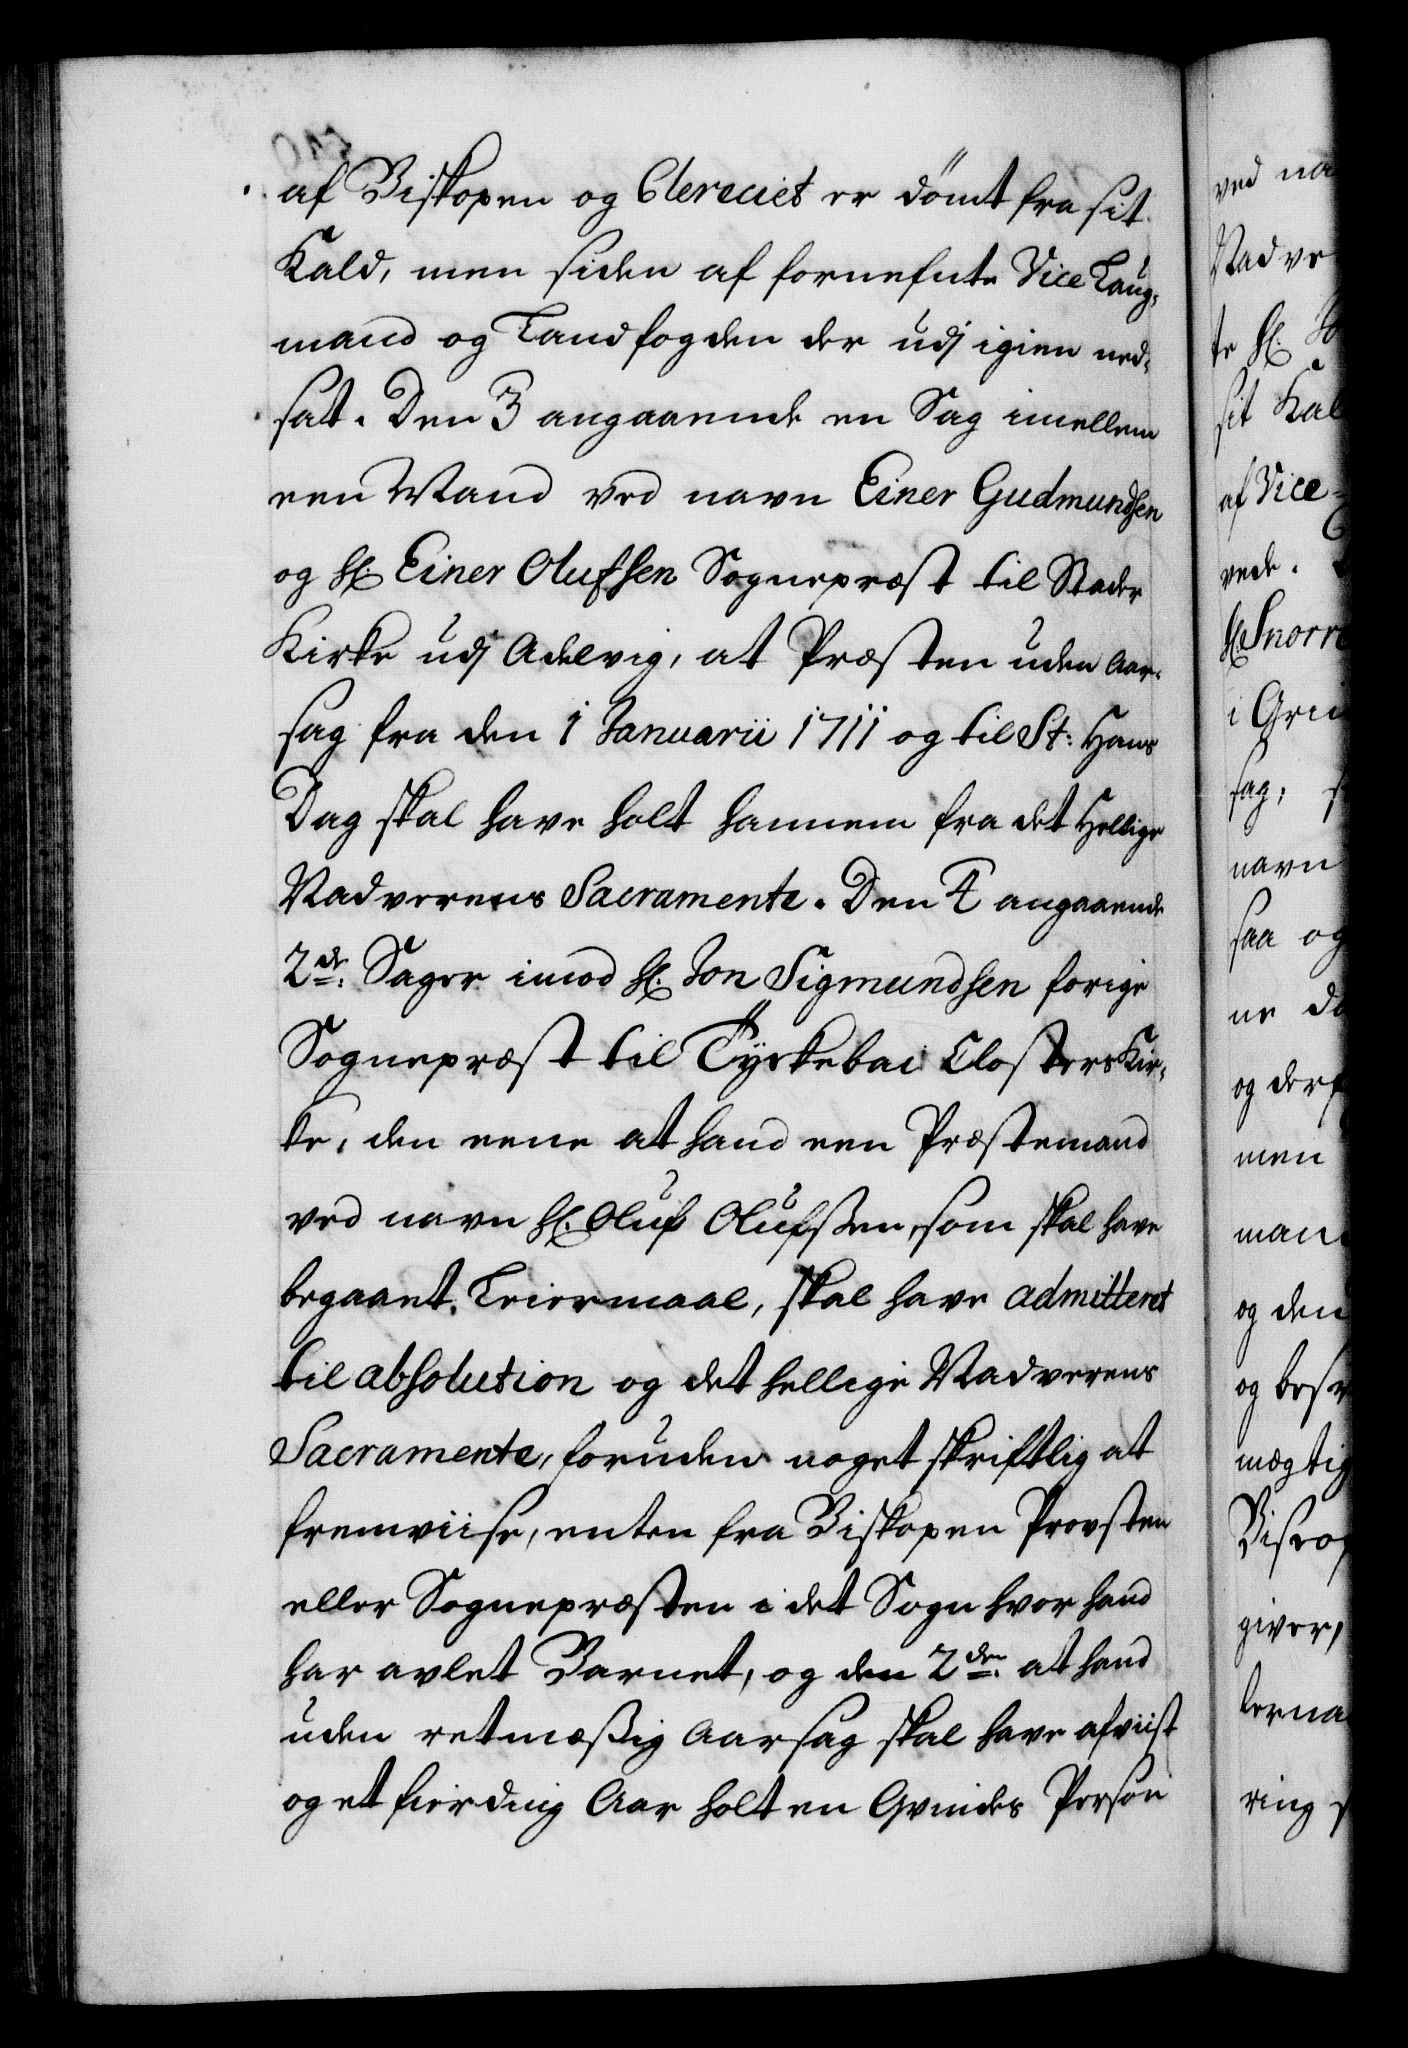 af Biskopen og Clereciet er dömt fra sit
Kald, men siden af fornefnte Vice Laug-
mand og Landfogden der udj igien ned-
sat. Den 3 angaaende en Sag imellem
een Mand ved navn Einer Gudmundsen
og Hr. Einer Olufsen Sognepræst til Stader
Kirke udj Adelvig, at Præsten uden Aar-
sag fra den 1 Januarii 1711 og til St: Hans
Dag skal have holt hannem fra det Hellige
Nadverens Sacramente. Den 4 angaaende
2de. Sager imod Hr. Jon Sigmundsen forige
Sognepræst til Tyckebai Closters Kir-
ke, den eene at hand een Præstemand
ved navn Hr. Oluf Olufssen, som skal have
begaaet Leiermaal, skal have admitteret
til absolution og det hellige Nadverens
Sacramente, foruden noget skriftlig at
fremviise, enten fra Biskopen Provsten
eller Sognepræsten i det Sogn hvor hand
har avlet Barnet, og den 2den. at hand
uden retmæssig Aarsag skal have afviist
og et fierding Aar holt en Qvindes Person
ved na
Nadve
te Hr. Jo
sit Kal
af Vice-
vede.
Hr. Snorre
i Gri
sag, s
navn
saa og
ne d
og der
men
man
og den
og bes
mægtig
Biskop
giver,
terna
ring